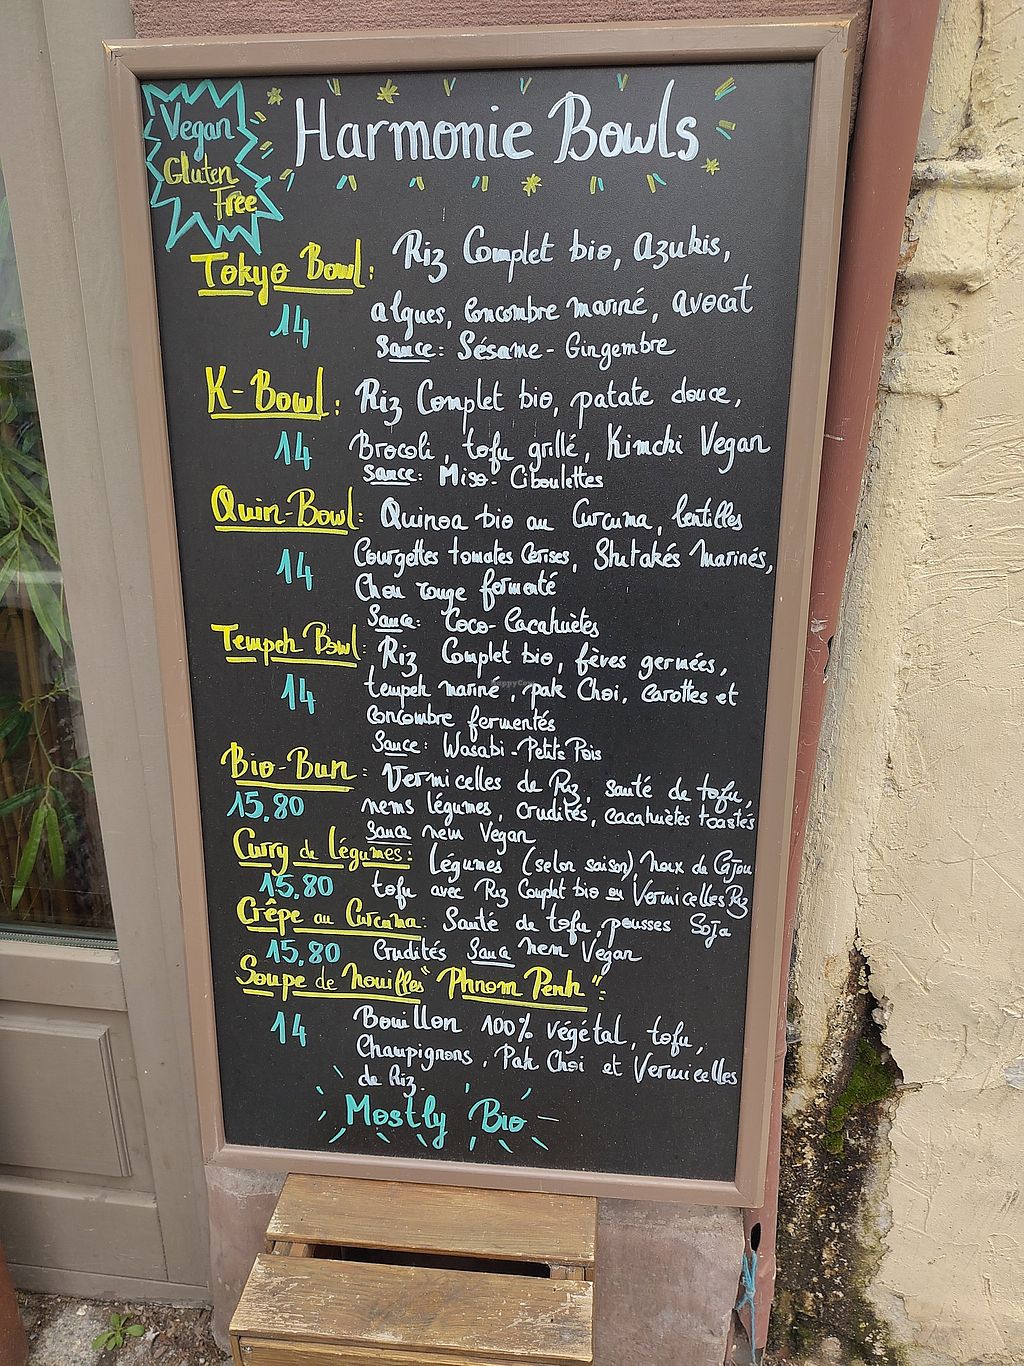 Vegan
Gluten
Free
Harmonie Bowls
Tokyo Bowl: Riz Complet bio, azukis,
14 algues, Concombre mariné, avocat
Sauce: Sésame - Gingembre
K-Bowl: Riz Complet bio, patate douce,
14 Brocoli, tofu grillé, Kimchi Vegan
Sauce: Miso - Ciboulettes
Quin-Bowl: Quinoa bio au Curcuma, lentilles
14 Courgettes tomates Cerises, Shitakés Marinés,
Chou rouge fermenté
Sauce: Coco - Cacahuètes
Tempeh Bowl: Riz Complet bio, fèves germées,
14 tempeh mariné, pak Choi, Carottes et
Concombre fermentés
Sauce: Wasabi - Petits Pois
Bio-Bun: Vermicelles de Riz, sauté de tofu,
15,80 nems légumes, crudités, cacahuètes toastés
Sauce nem Vegan
Curry de Légumes: Légumes (selon saison), noix de Cajou
15,80 tofu avec Riz Complet bio ou Vermicelles Riz
Crêpe au Curcuma: Sauté de tofu, pousses Soja
15,80 Crudités Sauce nem Vegan
Soupe de nouilles "Phnom Penh":
14 Bouillon 100% végétal, tofu,
Champignons, Pak Choi et Vermicelles
de Riz.
Mostly Bio